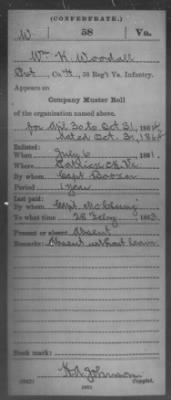 (CONFEDERATE.)
W 58 Va.
Wm K. Woodall
Pvt, Co. H, 58 Reg't Va. Infantry.
Appears on
Company Muster Roll
of the organization named above,
for Apl 30 to Oct 31, 1864
dated Oct 31, 1864
Enlisted:
When July 6, 1861.
Where C. H. Va
By whom Capt Booker
Period 1 year
Last paid:
By whom Capt
To what time 28 Feby, 1863.
Present or absent Absent
Remarks: Absent without leave
Book mark:
Johnson
(642) Copyist.